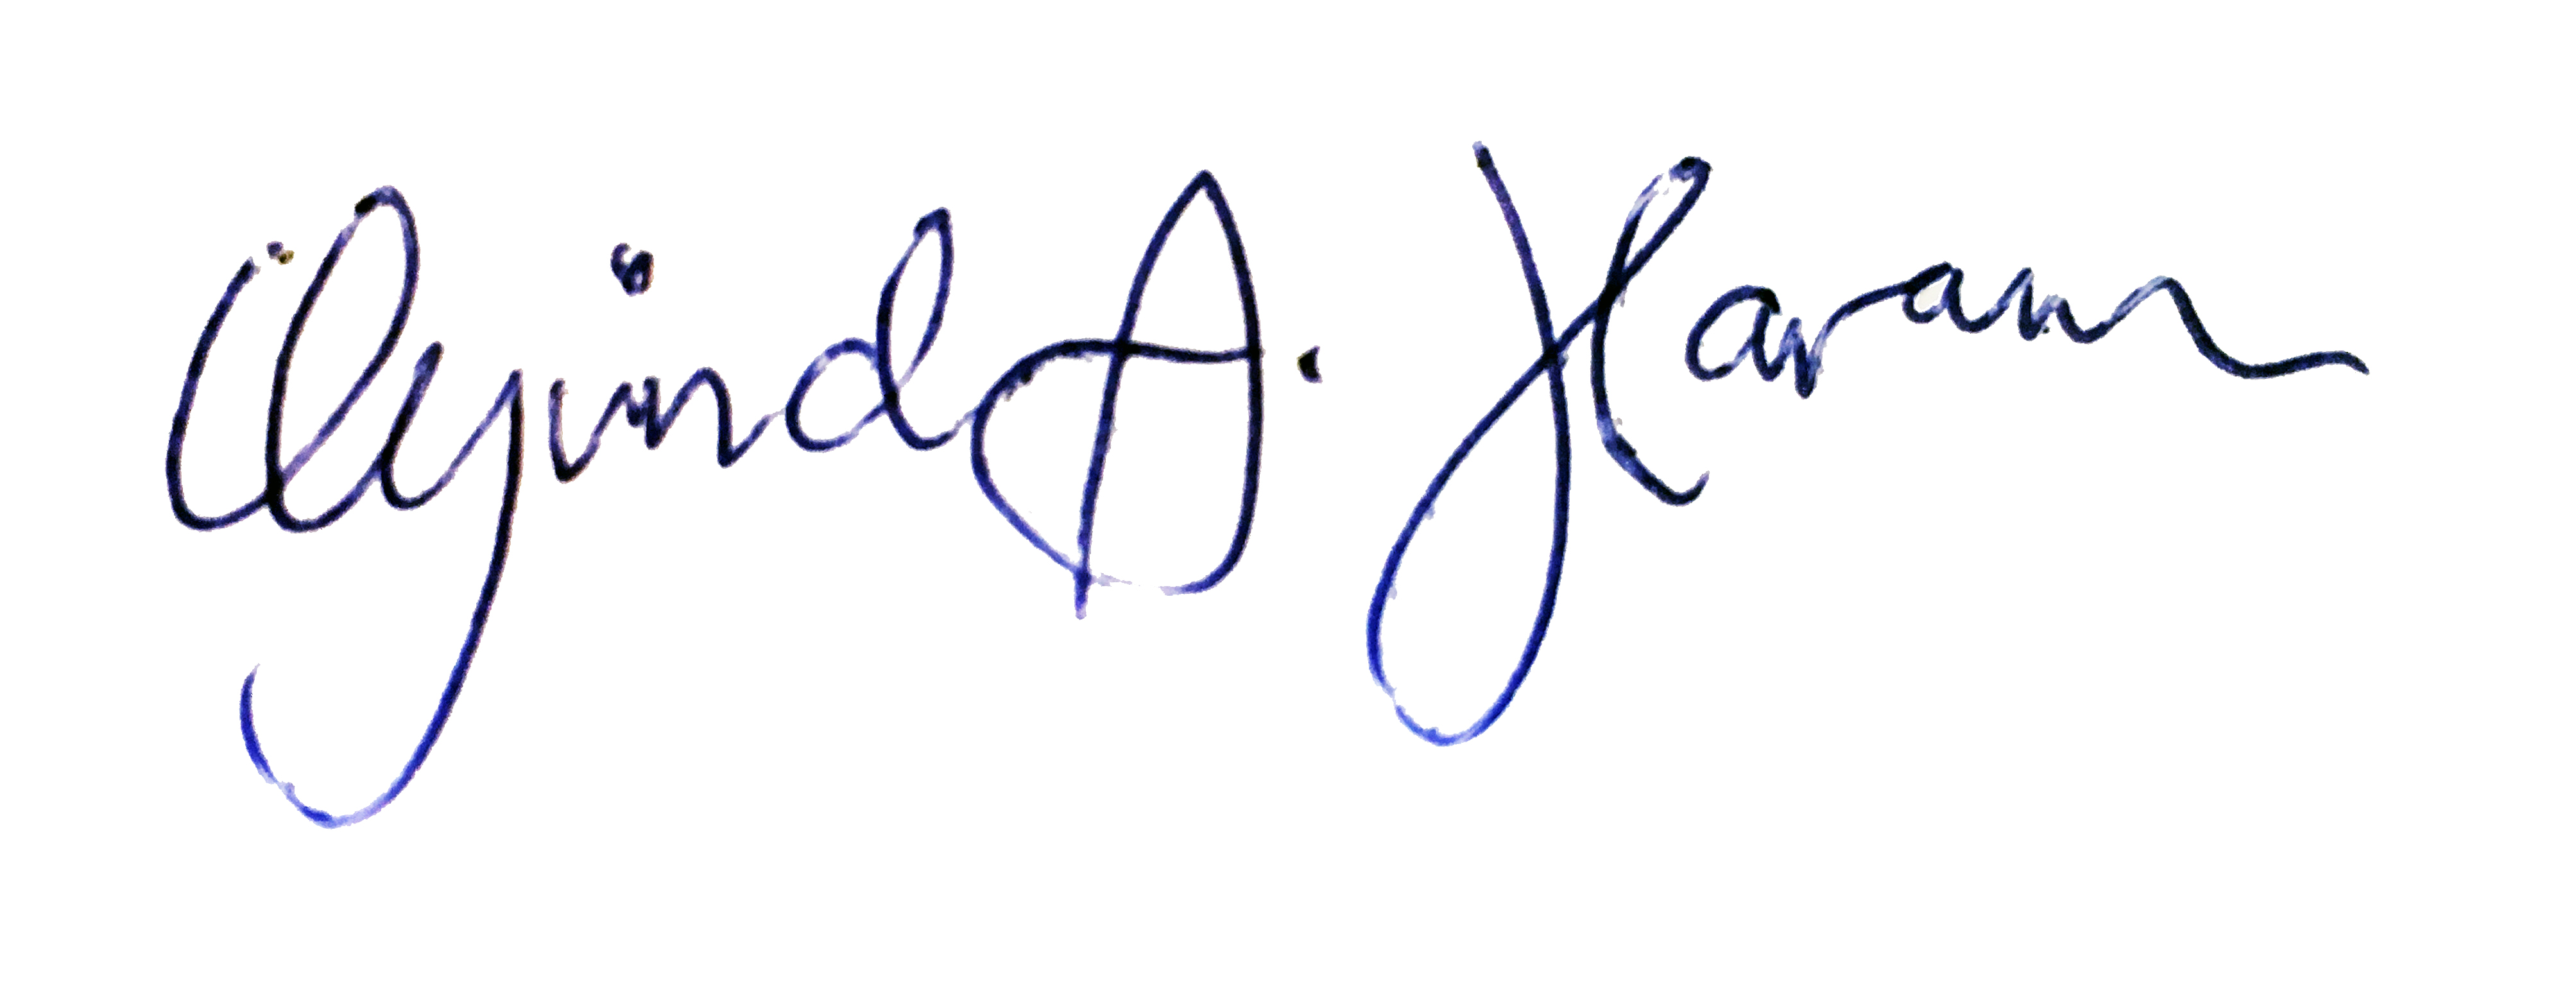 Øyvind A. Haram